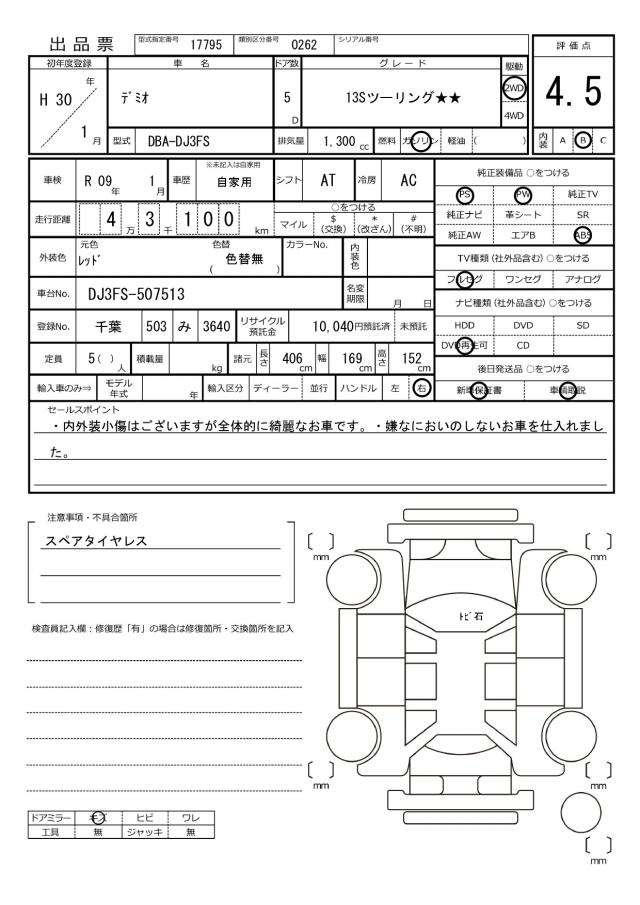 出品票 型式指定番号 17795 類別区分番号 0262 シリアル番号
評価点
4.5
内装 A B C
初年度登録 車名 ドア数 グレード 駆動
H 30 年 1 月 デミオ 5 D 13Sツーリング★★ 2WD 4WD
型式 DBA-DJ3FS 排気量 1,300 cc 燃料 ガソリン 軽油 ( )
車検 R 09 年 1 月 車歴 ※未記入は自家用 自家用 シフト AT 冷房 AC
走行距離 4 万 3 千 1 0 0 km
○をつける
マイル $(交換) *(改ざん) #(不明)
外装色 元色 レッド 色替 ( 色替無 ) カラーNo. 内装色
車台No. DJ3FS-507513 名変期限 月 日
登録No. 千葉 503 み 3640 リサイクル預託金 10,040円預託済 未預託
定員 5( ) 人 積載量 kg 諸元 長さ 406 cm 幅 169 cm 高さ 152 cm
輸入車のみ⇒ モデル年式 年 輸入区分 ディーラー 並行 ハンドル 左 右
純正装備品 ○をつける
PS PW 純正TV
純正ナビ 革シート SR
純正AW エアB ABS
TV種類(社外品含む) ○をつける
フルセグ ワンセグ アナログ
ナビ種類(社外品含む) ○をつける
HDD DVD SD
DVD再生可 CD
後日発送品 ○をつける
新車保証書 車輌取説
セールスポイント
・内外装小傷はございますが全体的に綺麗なお車です。・嫌なにおいのしないお車を仕入れまし
た。
注意事項・不具合箇所
スペアタイヤレス
検査員記入欄：修復歴「有」の場合は修復箇所・交換箇所を記入
ドアミラー キズ ヒビ ワレ
工具 無 ジャッキ 無
〔 〕 mm
〔 〕 mm
トビ石
〔 〕 mm
〔 〕 mm
〔 〕 mm